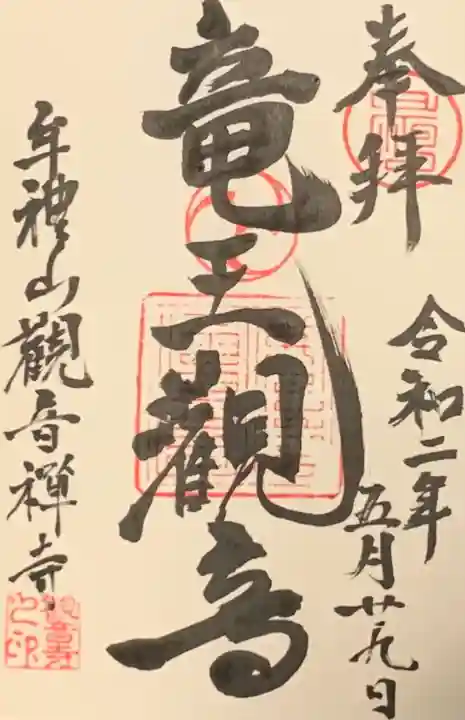 奉拝
令和二年
五月廿九日
竜王觀音
牟禮山觀音禅寺